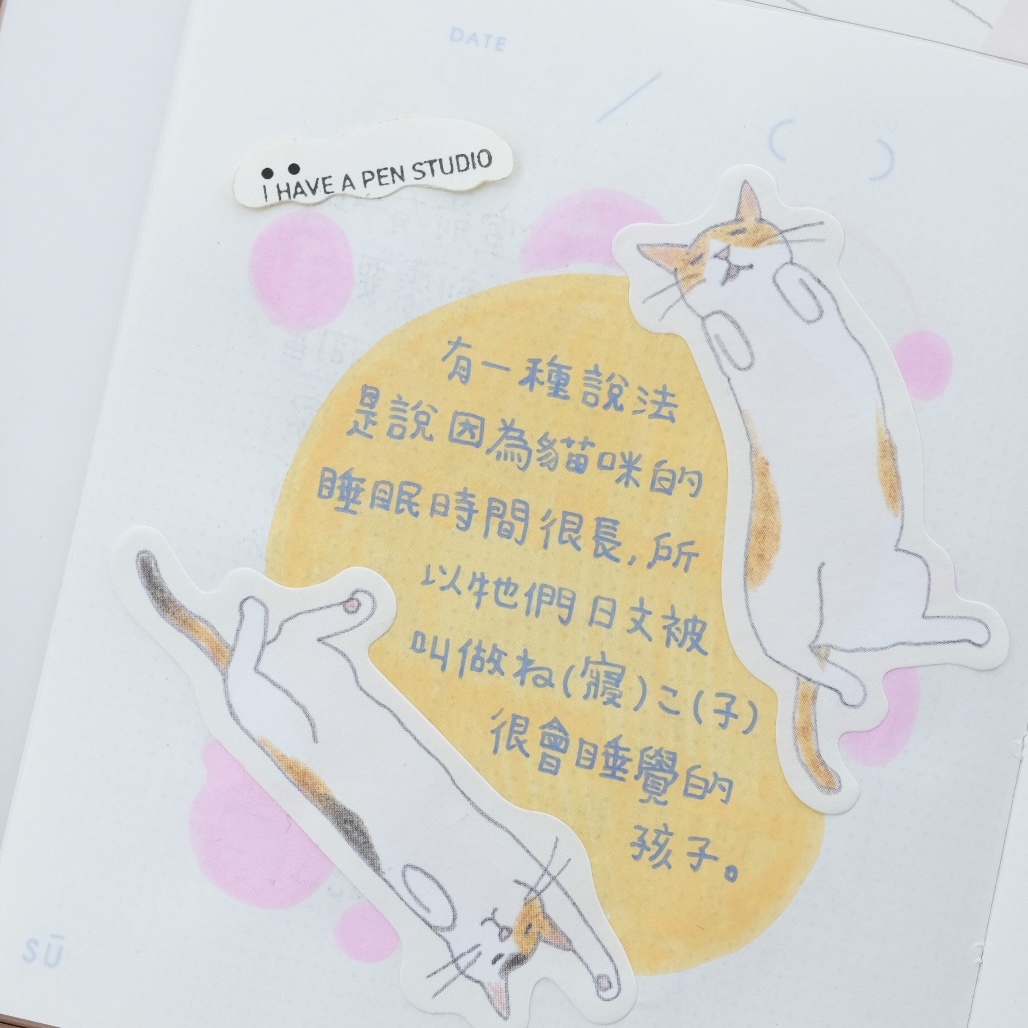 DATE
I HAVE A PEN STUDIO
有一種說法
是說因為貓咪的
睡眠時間很長,所
以牠們日文被
叫做ね(寢)こ(子)
很會睡覺的
孩子。
SŪ